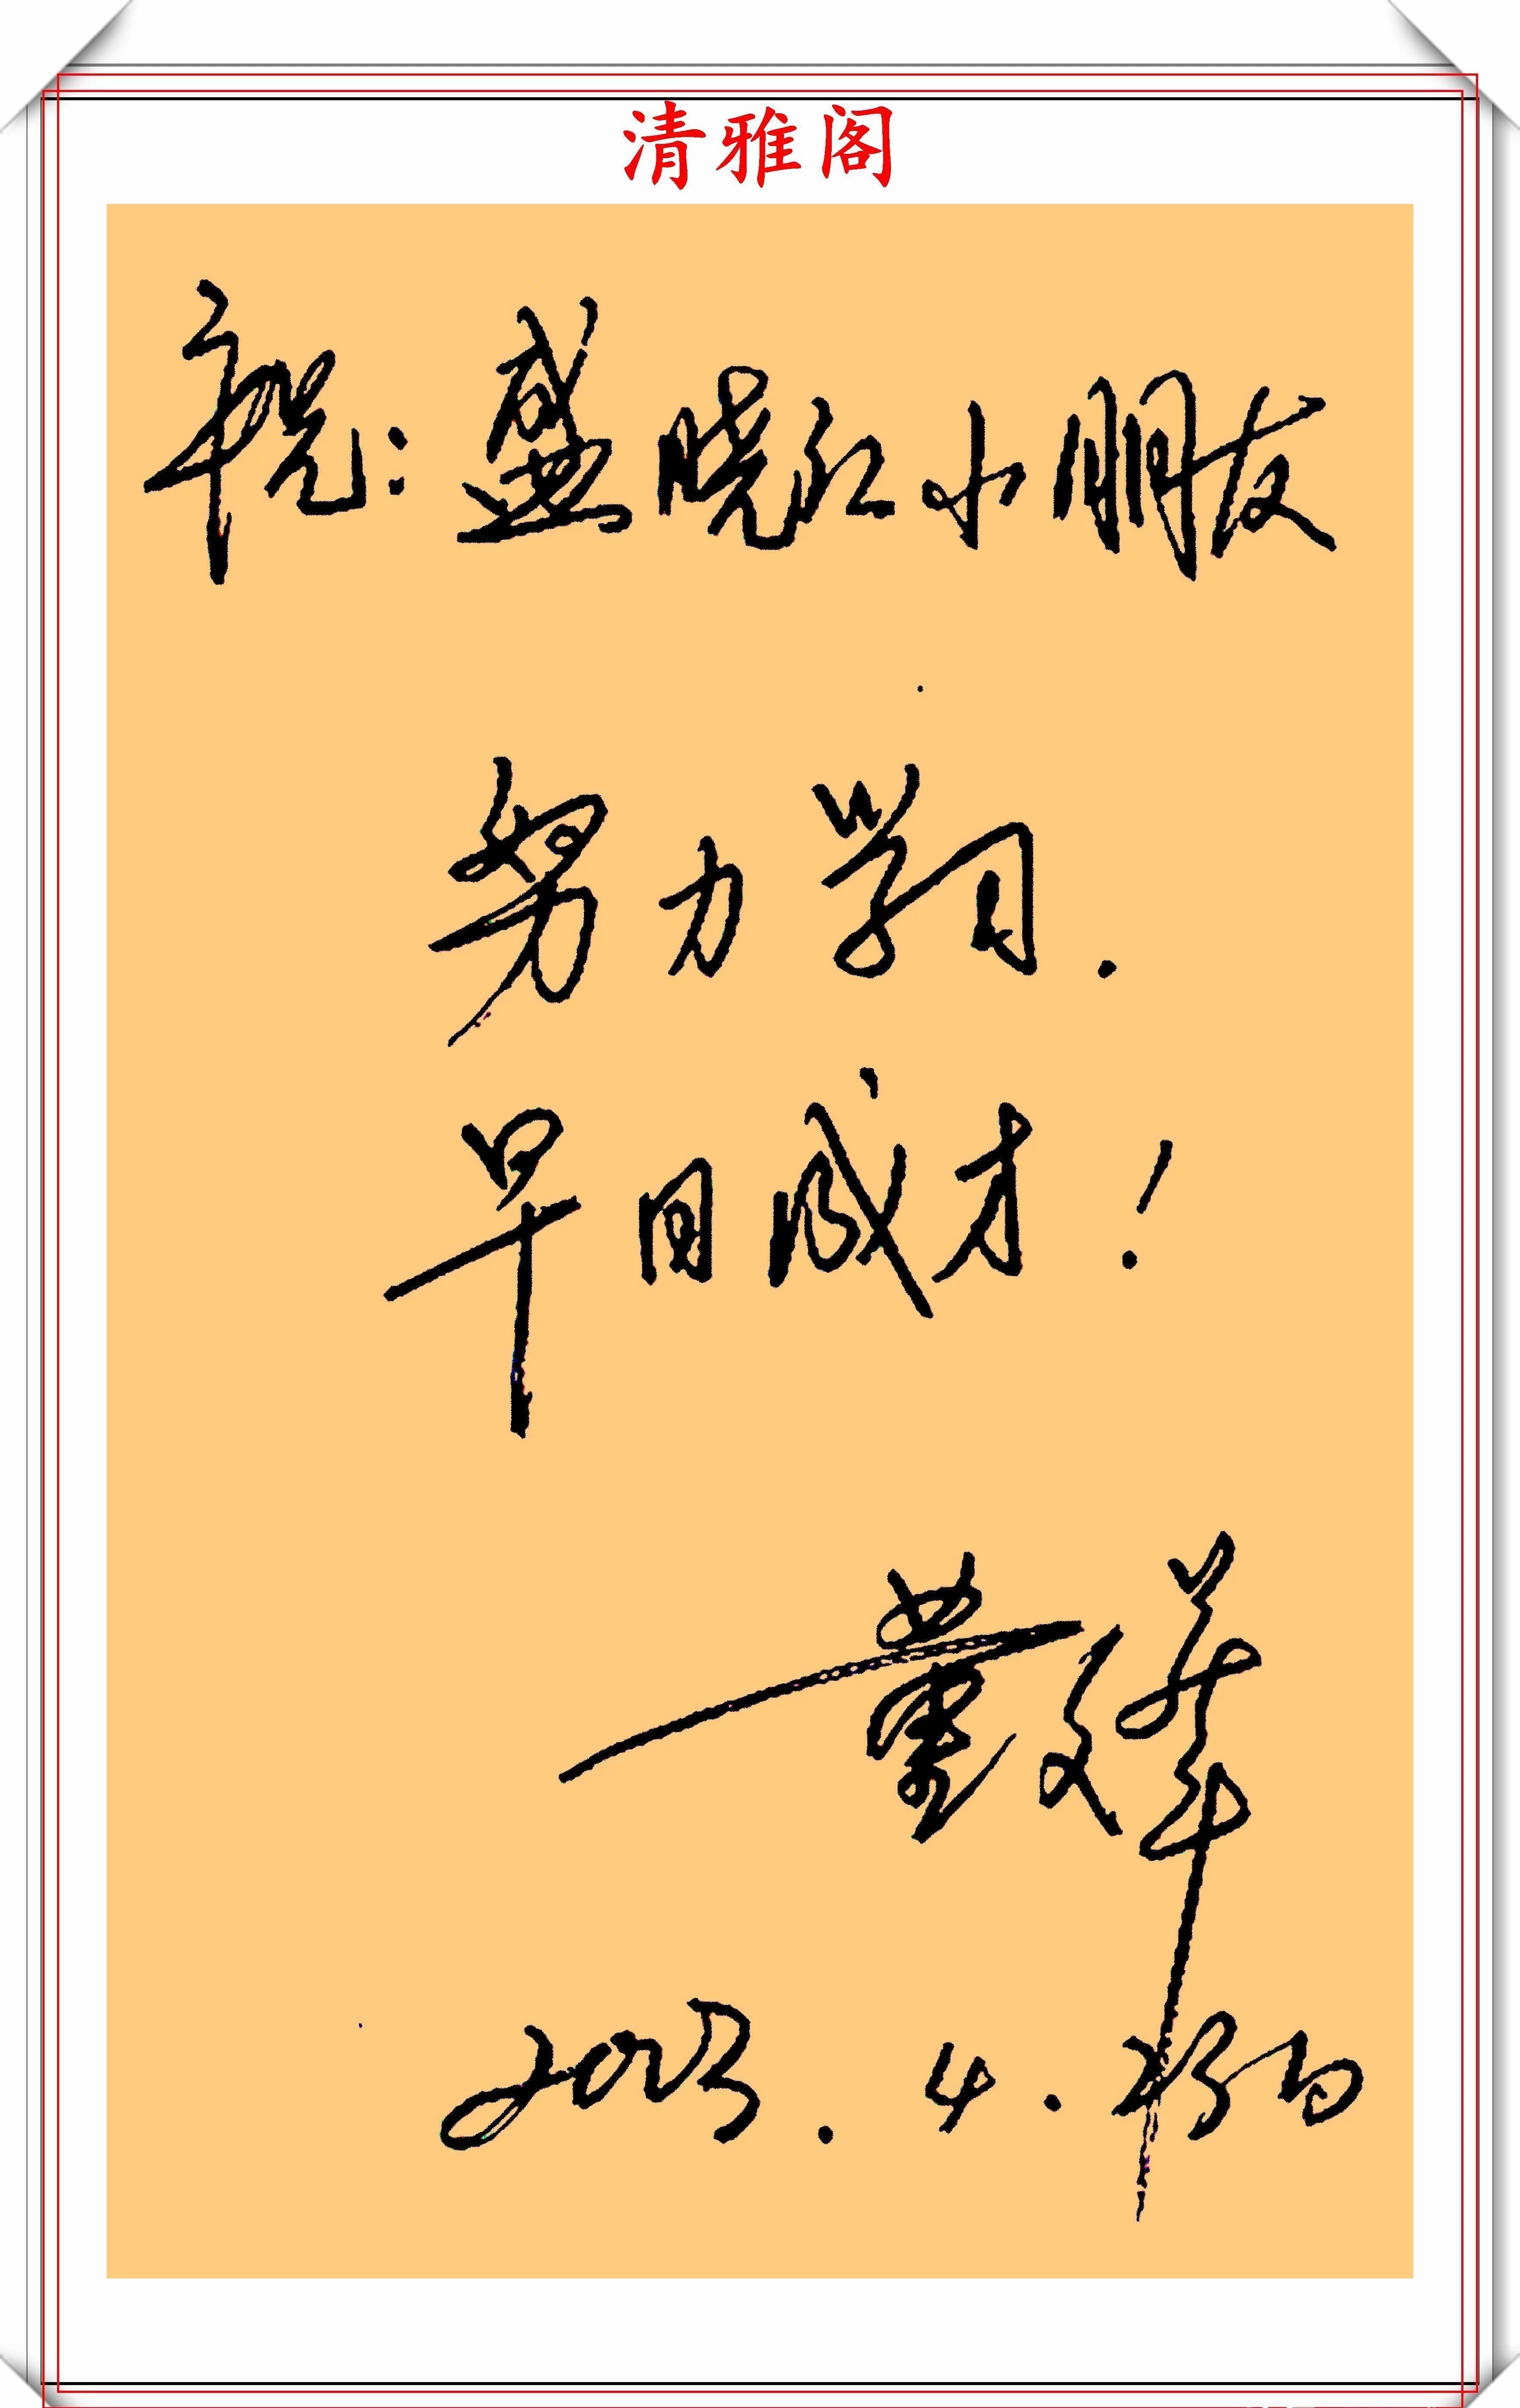 清雅阁
祝:盛晓江小朋友
努力学习.
早日成才!
董文华
2003.4.